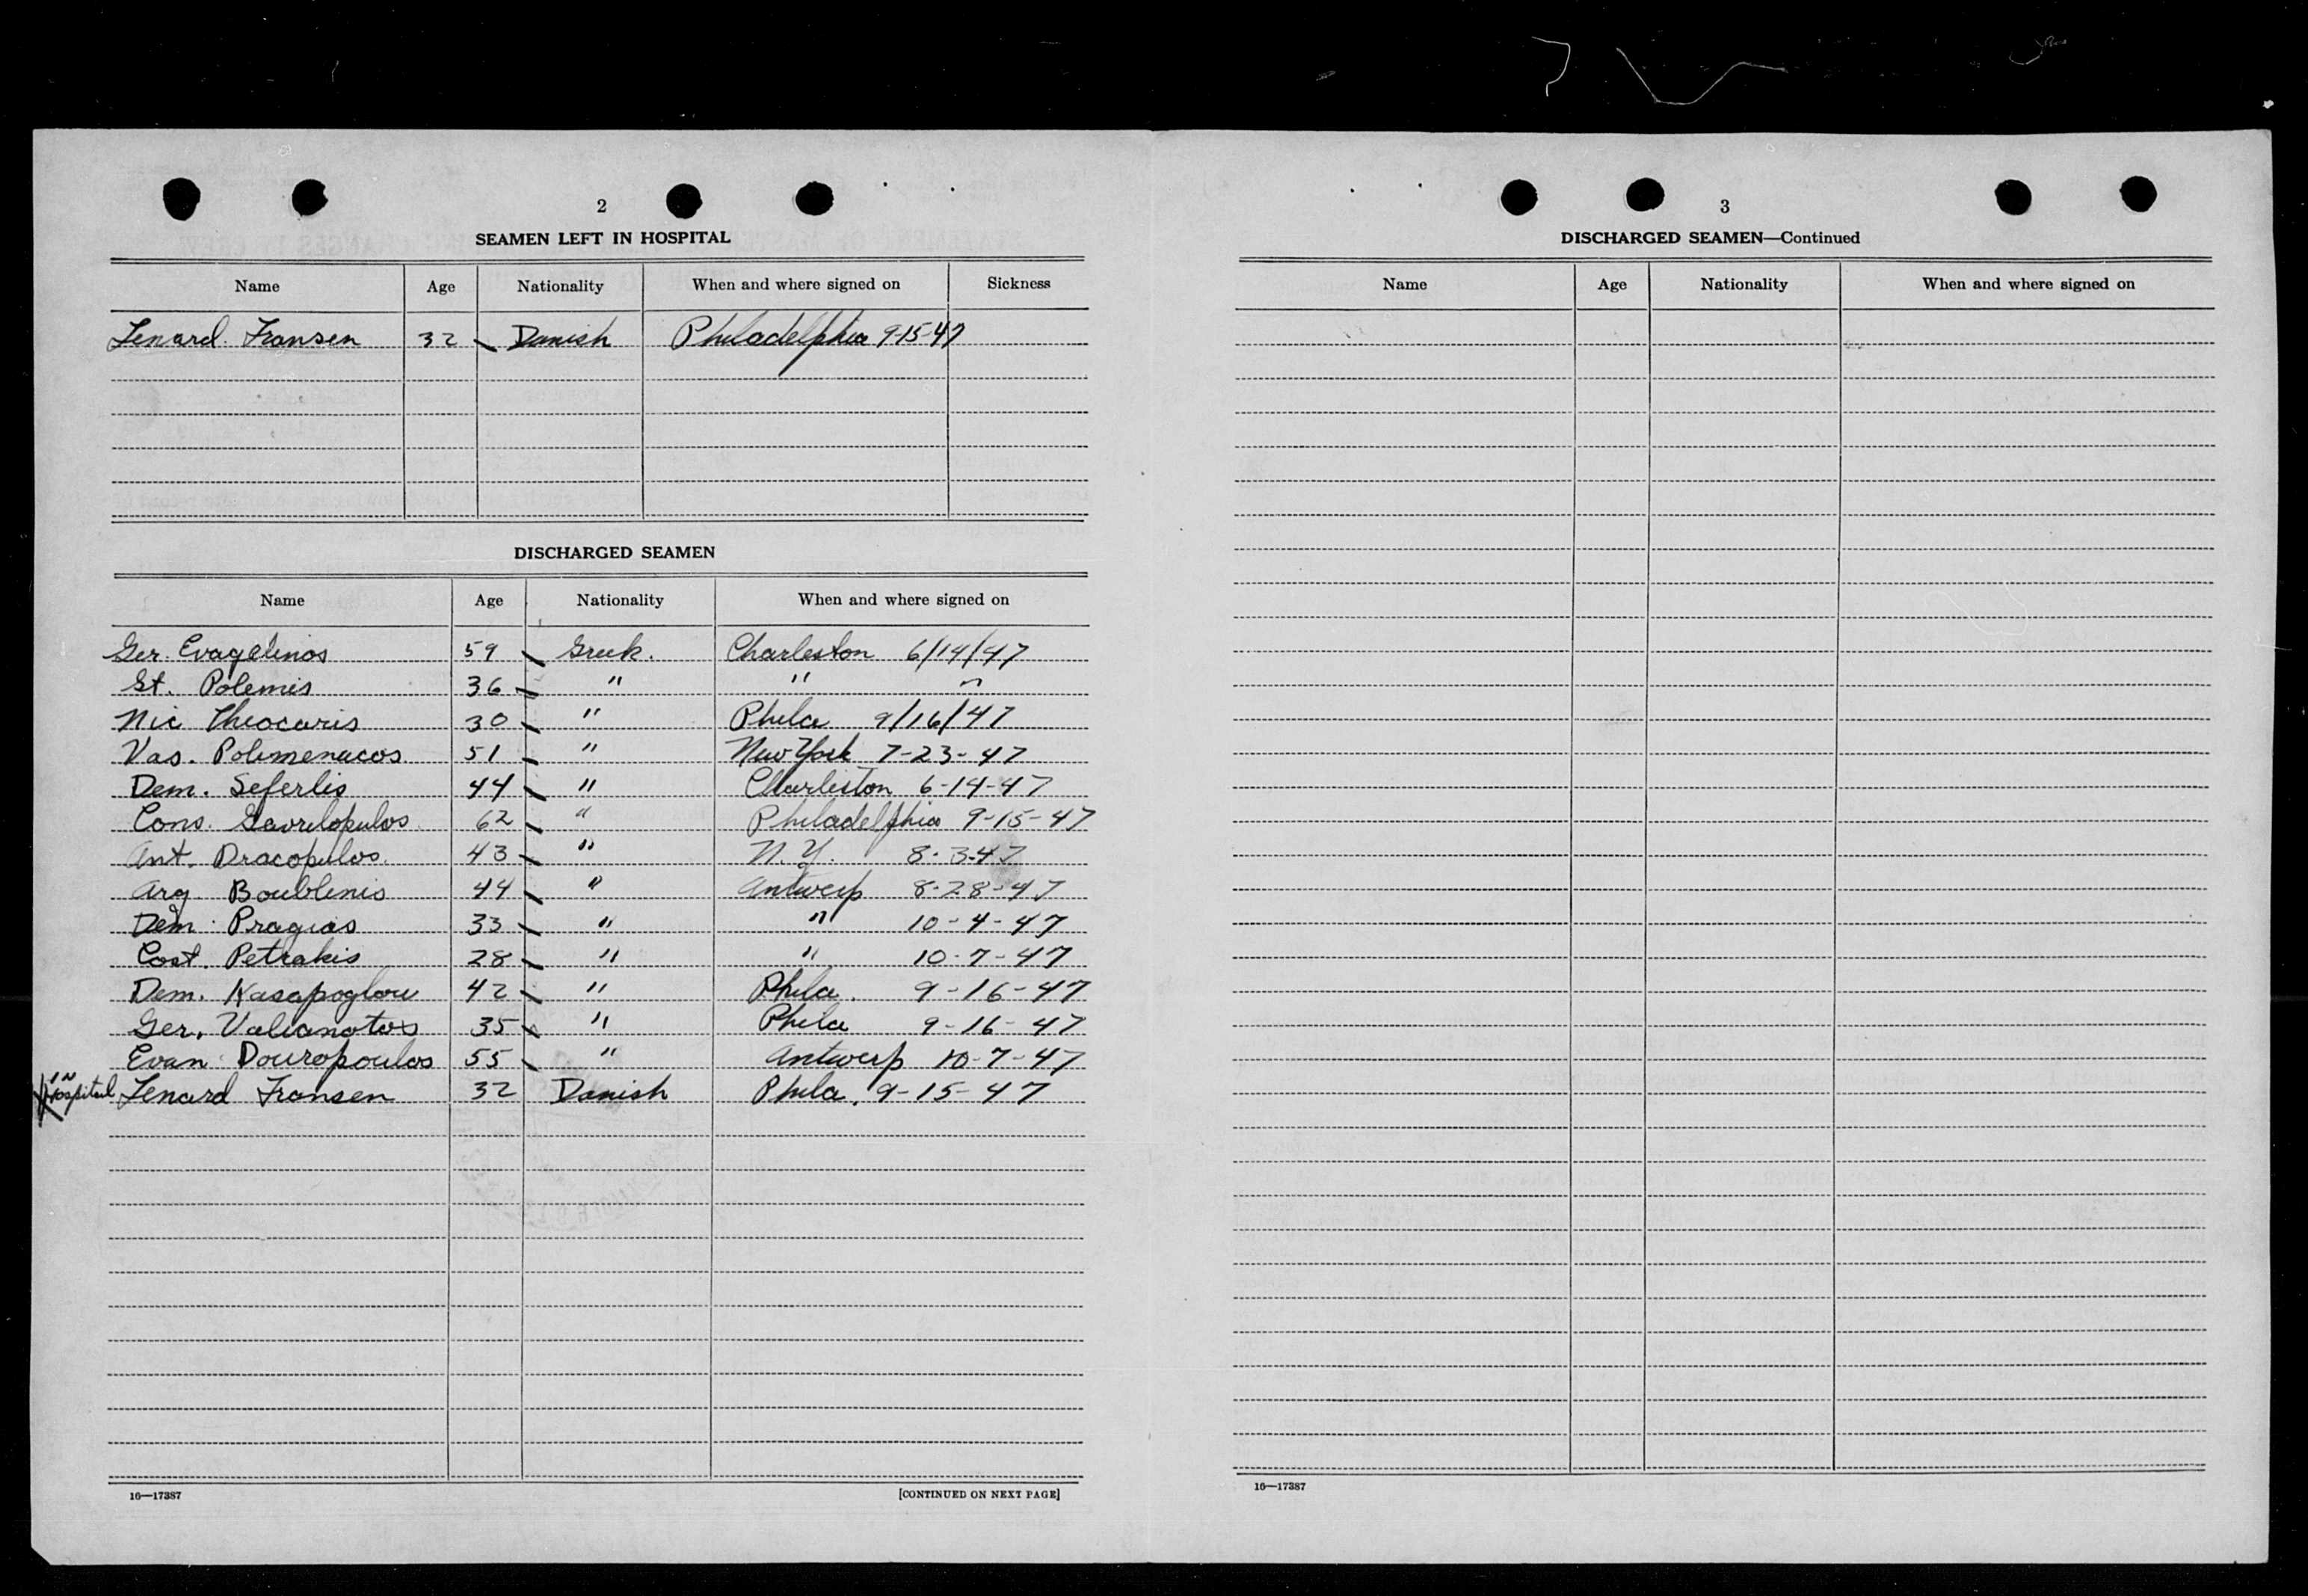 2
SEAMEN LEFT IN HOSPITAL
Name Age Nationality When and where signed on Sickness
Lenard Fransen 32 Danish Philadelphia 9-15-47
DISCHARGED SEAMEN
Name Age Nationality When and where signed on
Ger. Evagelinos 59 Greek. Charleston 6/14/47
St. Polemis 36 " " "
Nic Theocaris 30 " Phila 9/16/47
Vas. Polimenacos 51 " New York 7-23-47
Dem. Seferlis 44 " Charleston 6-14-47
Cons. Gavrilopulos 62 " Philadelphia 9-15-47
Ant. Dracopulos 43 " N.Y. 8-3-47
Arg. Boublinis 44 " Antwerp 8-28-47
Dem. Pragias 33 " " 10-4-47
Cost. Petrakis 28 " " 10-7-47
Dem. Kasapoglou 42 " Phila. 9-16-47
Ger. Valianatos 35 " Phila 9-16-47
Evan Douropoulos 55 " Antwerp 10-7-47
in Hospital Lenard Fransen 32 Danish Phila. 9-15-47
16—17387 [CONTINUED ON NEXT PAGE]
3
DISCHARGED SEAMEN—Continued
Name Age Nationality When and where signed on
16—17387